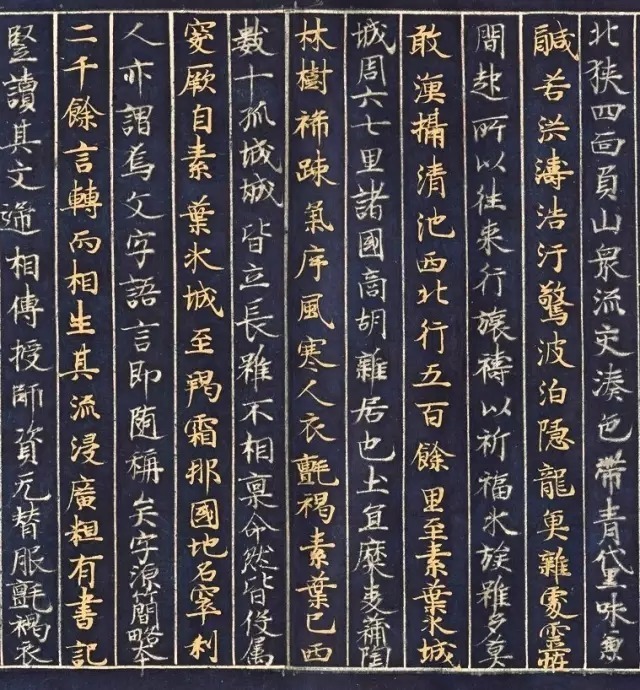 北狹四面負山衆流交湊色帶青黛味兼
鹹苦洪濤浩汗驚波汨隱龍魚雜處靈怪
間起所以往来行旅禱以祈福水族雖多莫
敢漁捕清池西北行五百餘里至素葉水城
城周六七里諸國商胡雜居也土宜糜麦蒱陶
林樹稀踈氣序風寒人衣氈褐素葉已西
數十孤城城皆立長雖不相稟命然皆役属
窣厥自素葉水城至羯霜那國地名窣利
人亦謂焉文字語言即随稱矣字源簡略本
二千餘言轉而相生其流浸廣粗有書記
竪讀其文遞相傳授師資无替服氈褐衣